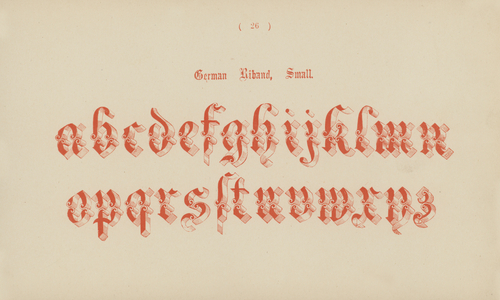 ( 26 )
German Riband, Small.
abcdefghijklmn
opqrsſtuvwxyz